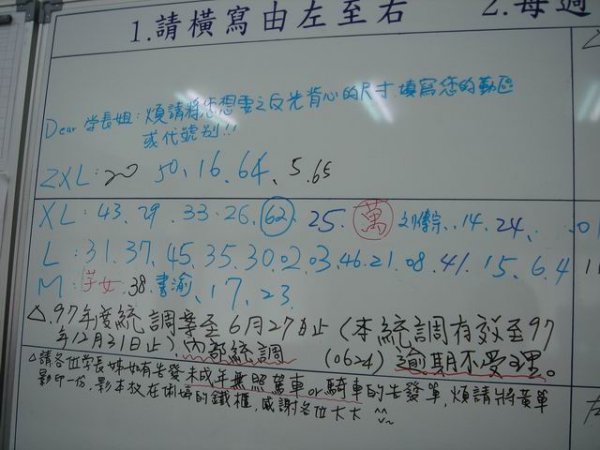 1.請橫寫由左至右
2.每週
Dear 学長姐：煩請將您想要之反光背心的尺寸填寫您的勤區
或代號別!!
2XL：20 50、16、64、5、65
XL：43、29、33、26、62、25、萬 、14、24、
L：31、37、45、35、30、02、03、46、21、08、41、15、6、4
M： 38、書渝、17、23
△.97年度統調業至6月27日止（本統調有效至97
年12月31日止），內部統調 (0624) 逾期不受理。
△請各位学長姊如有告發未成年無照駕車or騎車的告發單，煩請將黃單
影印一份，影本放在 的鐵櫃，感謝各位大大 ^^